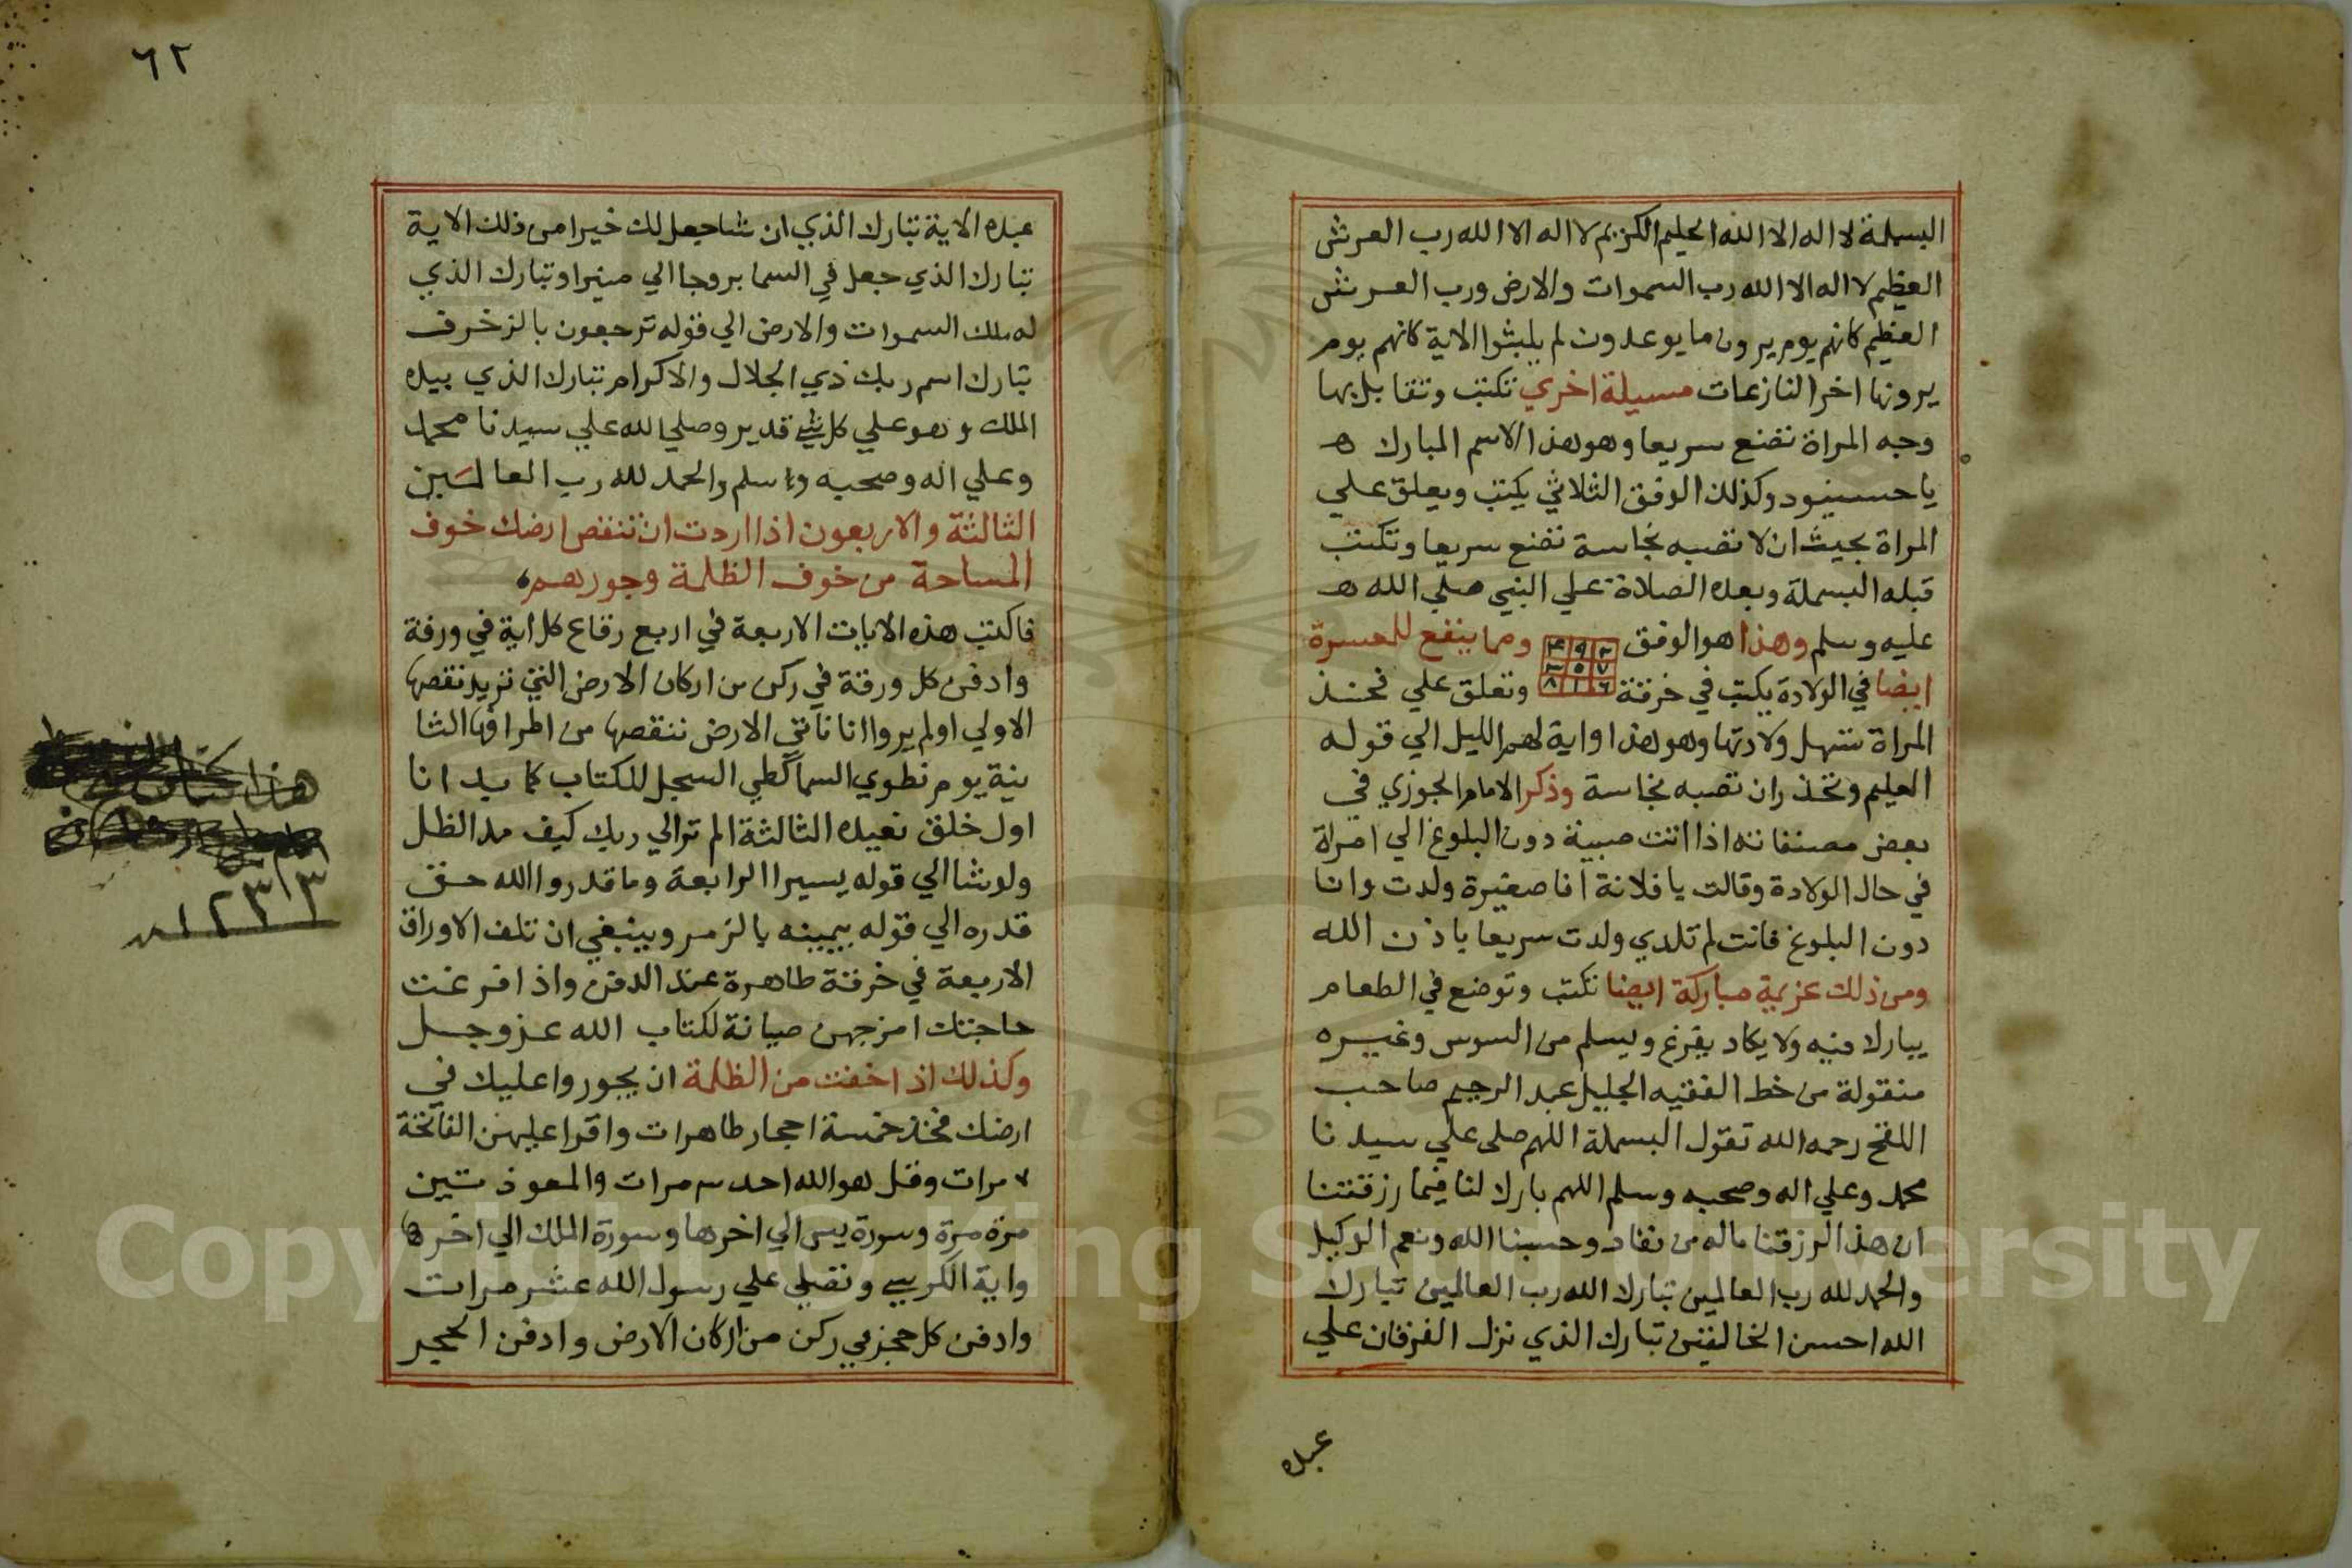 البسملة لا اله الا الله الحليم الكريم لا اله الا الله رب العرش
العظيم لا اله الا الله رب السموات والارض ورب العرش
العظيم كانهم يوم يرون ما يوعدون لم يلبثوا الاية كانهم يوم
يرونها اخر النازعات مسيلة اخري تكتب وتقابل بها
وجه المراة تضع سريعا وهو هذا الاسم المبارك ه
يا وكذلك الوفق الثلاثي يكتب ويعلق علي
المراة بحيث ان لا تصبه نجاسة تضع سريعا وتكتب
قبله البسملة وبعده الصلاة علي النبي صلي الله ه
عليه وسلم وهذا هو الوفق ومما ينفع للمعسرة
٤ ٩ ٢
٣ ٥ ٧
٨ ١ ٦
ايضا في الولادة يكتب في خرقة وتعلق علي فخذ
المراة تسهل ولادتها وهو هذا واية لهم الليل الي قوله
العليم وتحذر ان تصبه نجاسة وذكر الامام الجوزي في
بعض مصنفاته اذا اتت صبية دون البلوغ الي امراة
في حال الولادة وقالت يا فلانة انا صغيرة ولدت وانا
دون البلوغ فانت لم تلدي ولدت سريعا باذن الله
ومن ذلك عزيمة مباركة ايضا تكتب وتوضع في الطعام
يبارك فيه ولا يكاد يفرغ ويسلم من السوس وغيره
منقولة من خط الفقيه الجليل عبد الرحيم صاحب
رحمه الله تقول البسملة اللهم صلي علي سيدنا
محمد وعلي اله وصحبه وسلم اللهم بارك لنا فيما رزقتنا
ان هذا لرزقنا ماله من نفاد وحسبنا الله ونعم الوكيل
والحمد لله رب العالمين تبارك الله رب العالمين تبارك
الله احسن الخالقين تبارك الذي نزل الفرقان علي
عبده
٦٢
عبده الاية تبارك الذي ان شا جعل لك خيرا من ذلك الاية
تبارك الذي جعل في السما بروجا الي منيرا وتبارك الذي
له ملك السموات والارض الي قوله ترجعون بالزخرف
تبارك اسم ربك ذي الجلال والاكرام تبارك الذي بيده
الملك وهو علي كل شي قدير وصلي الله علي سيدنا محمد
وعلي اله وصحبه وسلم والحمد لله رب العالمين
الثالثة والاربعون اذا اردت ان تنقص ارضك خوف
المساحة من خوف الظلمة وجورهم
فاكتب هذه الايات الاربعة في اربع رقاع كل اية في ورقة
وادفن كل ورقة في ركن من اركان الارض التي تريد نقصها
الاولي اولم يروا انا ناتي الارض ننقصها من اطرافها الثا
نية يوم نطوي السما كطي السجل للكتاب كما بدانا
اول خلق نعيده الثالثة الم تر الي ربك كيف مد الظل
ولو شا الي قوله يسيرا الرابعة وما قدروا الله حق
قدره الي قوله بيمينه بالزمر وينبغي ان تلف الاوراق
الاربعة في خرقة طاهرة عند الدفن واذا فرغت
حاجتك صيانة لكتاب الله عز وجل
وكذلك اذا خفت من الظلمة ان يجوروا عليك في
ارضك فخذ خمسة احجار طاهرات واقرا عليهن الفاتحة
٧ مرات وقل هو الله احد ٣ مرات والمعوذتين
مرة مرة وسورة يس الي اخرها وسورة الملك الي اخرها
واية الكرسي وتصلي علي رسول الله عشر مرات
وادفن كل حجر في ركن من اركان الارض وادفن الحجر
هذا
Copyright © King Saud University
195